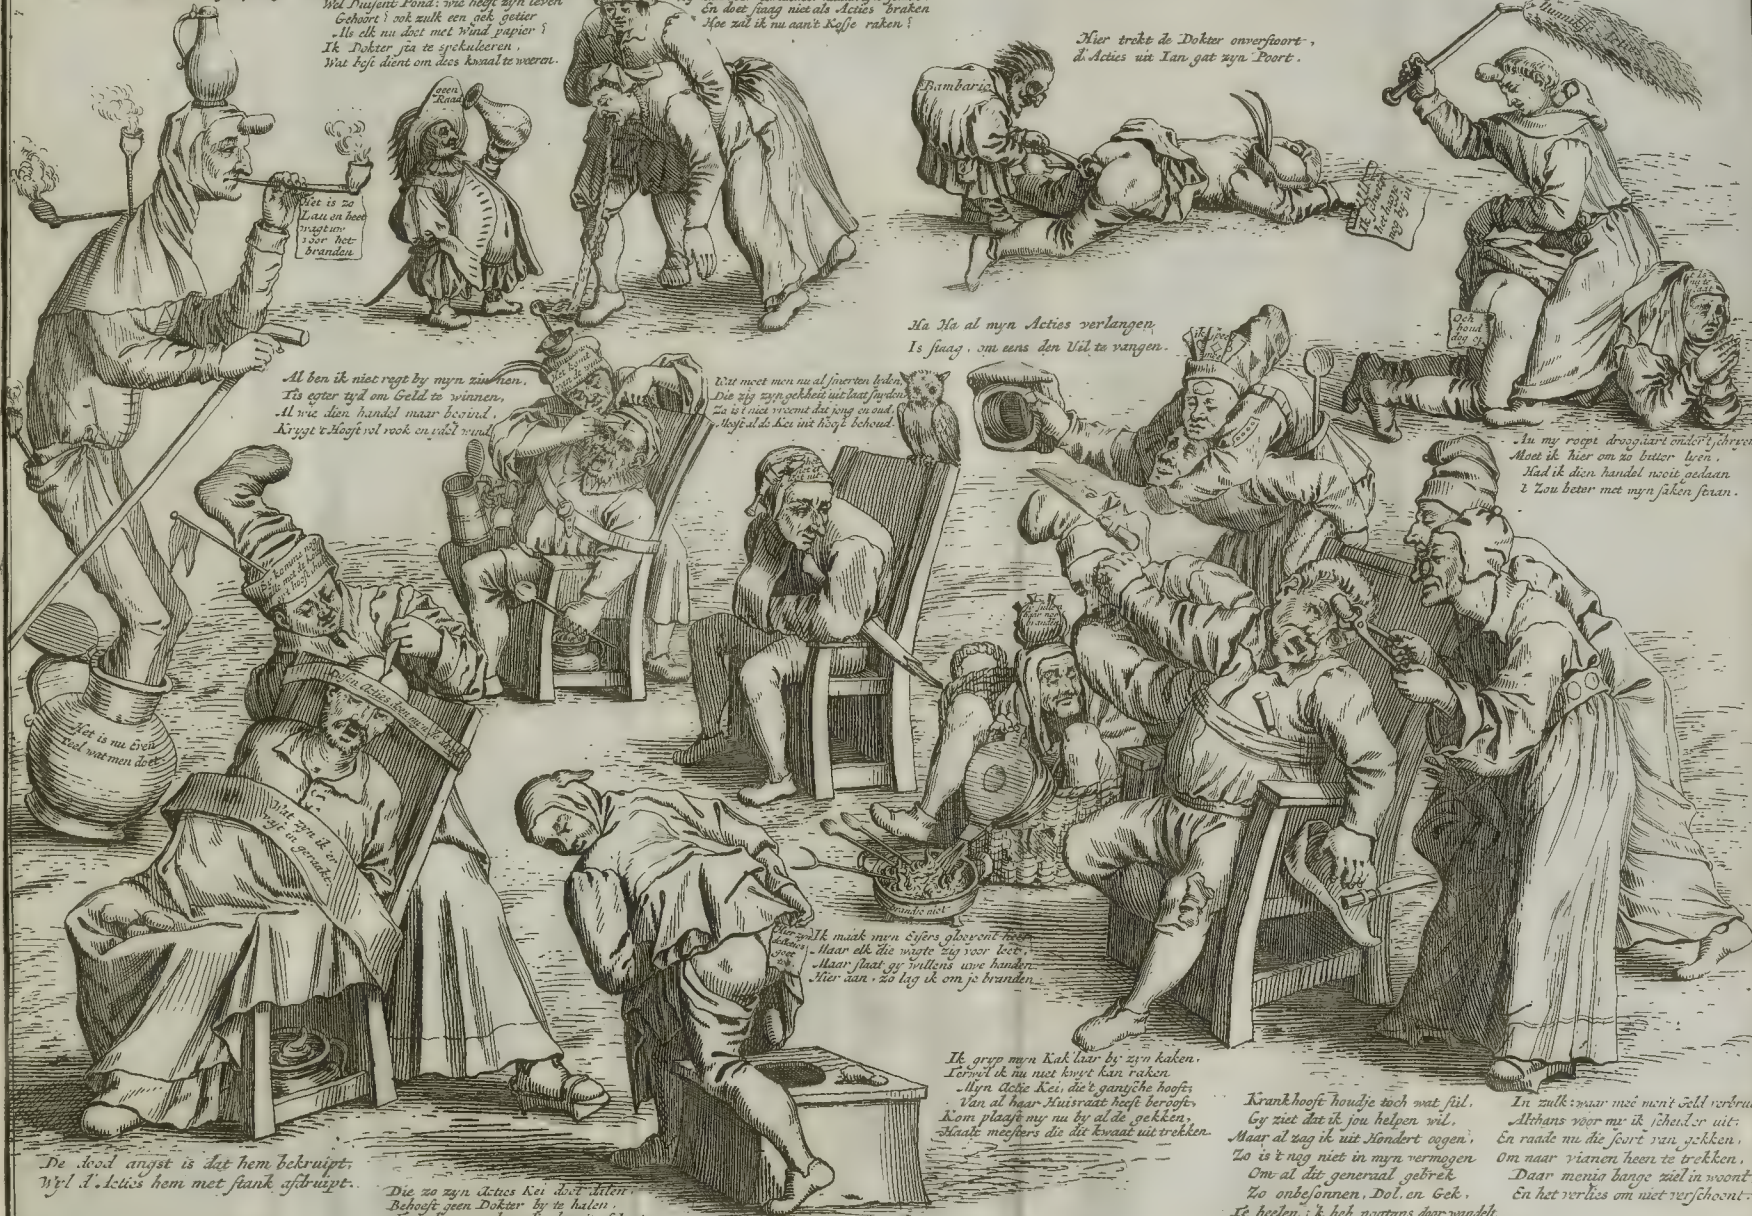 Wel Duisent Pond: wie heeft zyn leven
Gehoort? ook zulk een gek getier
Als elk nu doet met Wind papier?
Ik Dokter sta te spekuleeren,
Wat best dient om dees kwaal te weeren.
En doet staag niet als Acties braken
Hoe zal ik nu aan't Kosje raken?
Hier trekt de Dokter onverstoort,
d'Acties uit Ian gat zyn Poort.
geen
Raad
Bambario
Het is zo
Lau en heet
wagt uw
voor het
branden
het nooge
nog by in
Och
houd
dog op
Ha Ha al myn Acties verlangen,
Is staag, om eens den Uil te vangen.
Al ben ik niet regt by myn zinnen,
Tis egter tyd om Geld te winnen,
Al wie dien handel maar begind,
Krygt 't Hooft vol rook en ydel wind
Wat moet men nu al smerten lyden,
Die zig zyn gekheit uit laat snyden
Zo is 't niet vreemt dat jong en oud,
Nooyt al de Kei uit hooft behoud.
Au my roept droogaart onder 't schryen
Moet ik hier om zo bitter lyen,
Had ik dien handel nooit gedaan
't Zou beter met myn saken staan.
Desen Acties Kei
Het is nu Even
Veel wat men doet
Wat zyn ik er
vys en geraakt
brandje niet
Hier zyn
d'Acties
goet
Ik maak myn Eisers gloevent heet
Maar elk die wagte zig voor leet,
Maar slaat gy willens uwe handen
Hier aan, zo lag ik om je branden
Ik gryp myn Kak'laar by zyn kaken,
Terwyl ik nu niet kwyt kan raken
Myn Actie Kei, die 't gantsche hooft,
Van al haar Huisraat heeft berooft,
Kom plaast my nu by al de gekken,
Haalt meesters die dit kwaat uit trekken.
Krankhooft houdje toch wat stil,
Gy ziet dat ik jou helpen wil,
Maar al zag ik uit Hondert oogen,
Zo is 't nog niet in myn vermogen
Om al dit generaal gebrek
Zo onbesonnen, Dol, en Gek,
Te heelen, 'k heb nogtans door wandelt
In zulk: waar mee men't Geld verbru
Althans voor my ik scheider uit,
En raade nu die soort van gekken,
Om naar vianen heen te trekken,
Daar menig bange ziel in woont
En het verlies om niet verschoont.
De dood angst is dat hem bekruipt,
Wyl d'Acties hem met stank afdruipt.
Die zo zyn Acties Kei doet dalen,
Behoeft geen Dokter by te halen,